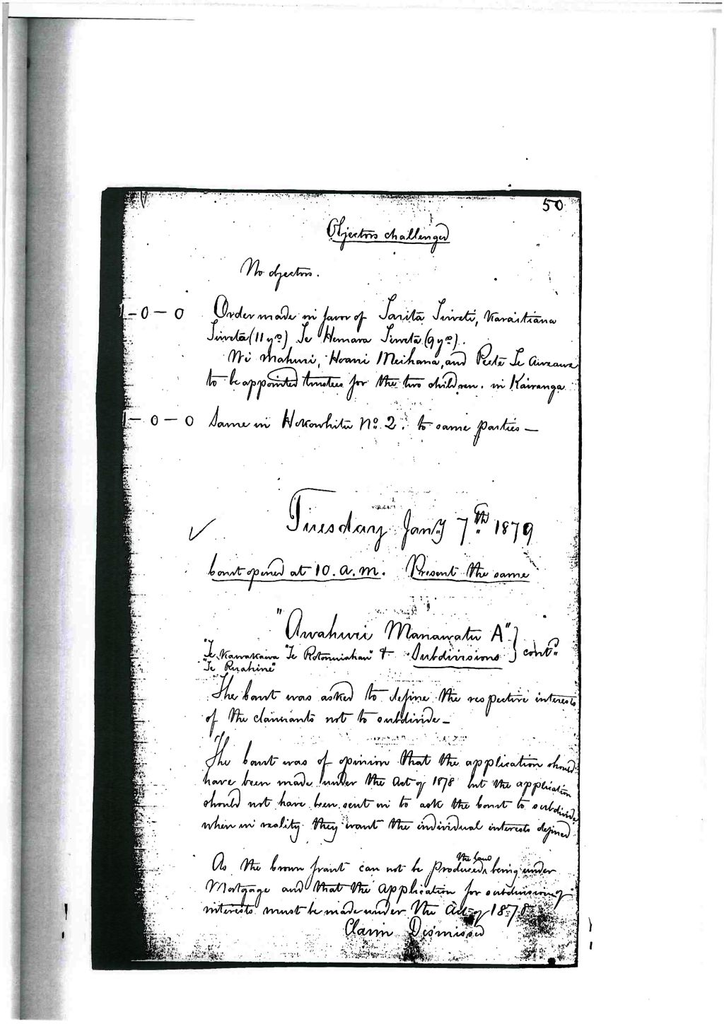 50
Objectors challenged
No objectors.
1-0-0 Order made in favor of Tarita Tirveta, Karaitiana
(11 yrs) Te Hemara (9 yrs).
Wi Mahuri, Hoani Meihana, and Peeti Te Aweawe
to be appointed trustees for the two children. in Kairanga
1-0-0 Same in Hokowhitu No. 2. to same parties —
Tuesday Jany 7th 1879
Court opened at 10. a.m. Present the same
"Awahuri Manawatu A" }
"Te Kawakawa "Te Rotonuiahau" + Subdivisions } contd.
Te Ruahine"
The Court was asked to define the respective interests
of the claimants not to subdivide —
The Court was of opinion that the application should
have been made under the Act of 1878 but the application
should not have been sent in to ask the Court to subdivide
when in reality they want the individual interests defined
As the Crown Grant can not be produced, the land being under
Mortgage and that the application for subdivision of
interests must be made under the Act of 1878
Claim Dismissed